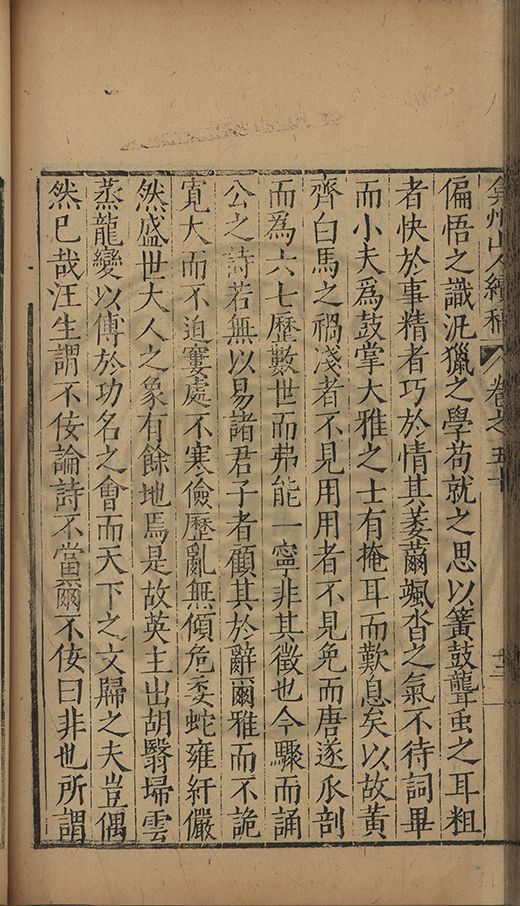 弇州山人續稿 卷之五十 十三
偏悟之識汎獵之學苟就之思以簧鼓聾虫之耳粗
者快於事精者巧於情其萎薾颯沓之氣不待詞畢
而小夫爲鼓掌大雅之士有掩耳而歎息矣以故黄
齊白馬之禍淺者不見用用者不見免而唐遂𤓰剖
而爲六七歷數世而弗能一寧非其徵也今驟而誦
公之詩若無以易諸君子者顧其於辭爾雅而不詭
寬大而不迫窶處不寒儉歷亂無傾危委蛇雍紆儼
然盛世大人之象有餘地焉是故英主出胡翳埽雲
蒸龍變以傅於功名之會而天下之文歸之夫豈偶
然已哉汪生謂不佞論詩不當爾不佞曰非也所謂